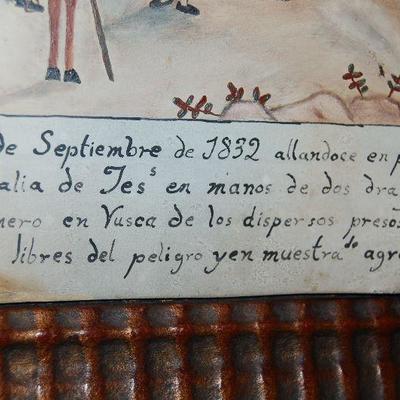 de Septiembre de 1832 allandoce en p
alia de Jesˢ en manos de dos dra
nero en Vusca de los dispersos preso
libres del peligro yen muestraᵈᵒ agr